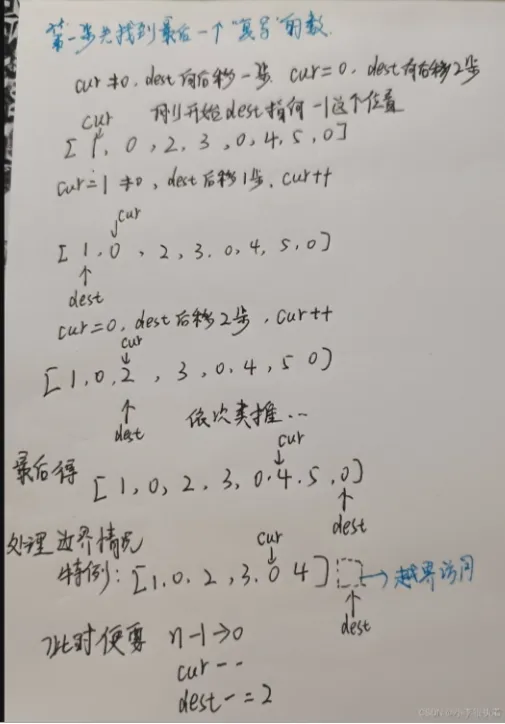 第一步先找到最后一个"复写"的数.
cur≠0, dest向后移一步. cur=0, dest向后移2步
cur 刚开始dest指向-1这个位置
[1, 0, 2, 3, 0, 4, 5, 0]
cur=1≠0, dest后移1步, cur++
cur
[1, 0, 2, 3. 0, 4, 5, 0]
dest
cur=0, dest后移2步, cur++
cur
[1, 0, 2, 3, 0, 4, 5 0]
dest 依次类推...
cur
最后得 [1, 0, 2, 3, 0, 4. 5, 0]
dest
处理边界情况
cur
特例: [1, 0. 2, 3. 0 4] →越界访问
dest
此时便要 n-1→0
cur--
dest-=2